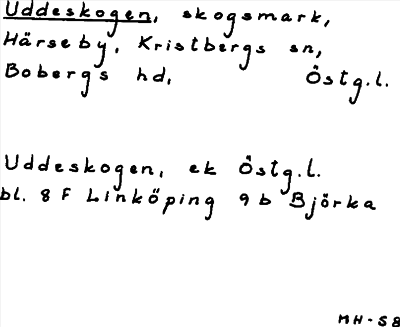 Uddeskogen, skogsmark,
Härseby, Kristbergs sn,
Bobergs hd, Östg.l.
Uddeskogen, ek Östg.l.
bl. 8 F Linköping 9 b Björka
MH-58